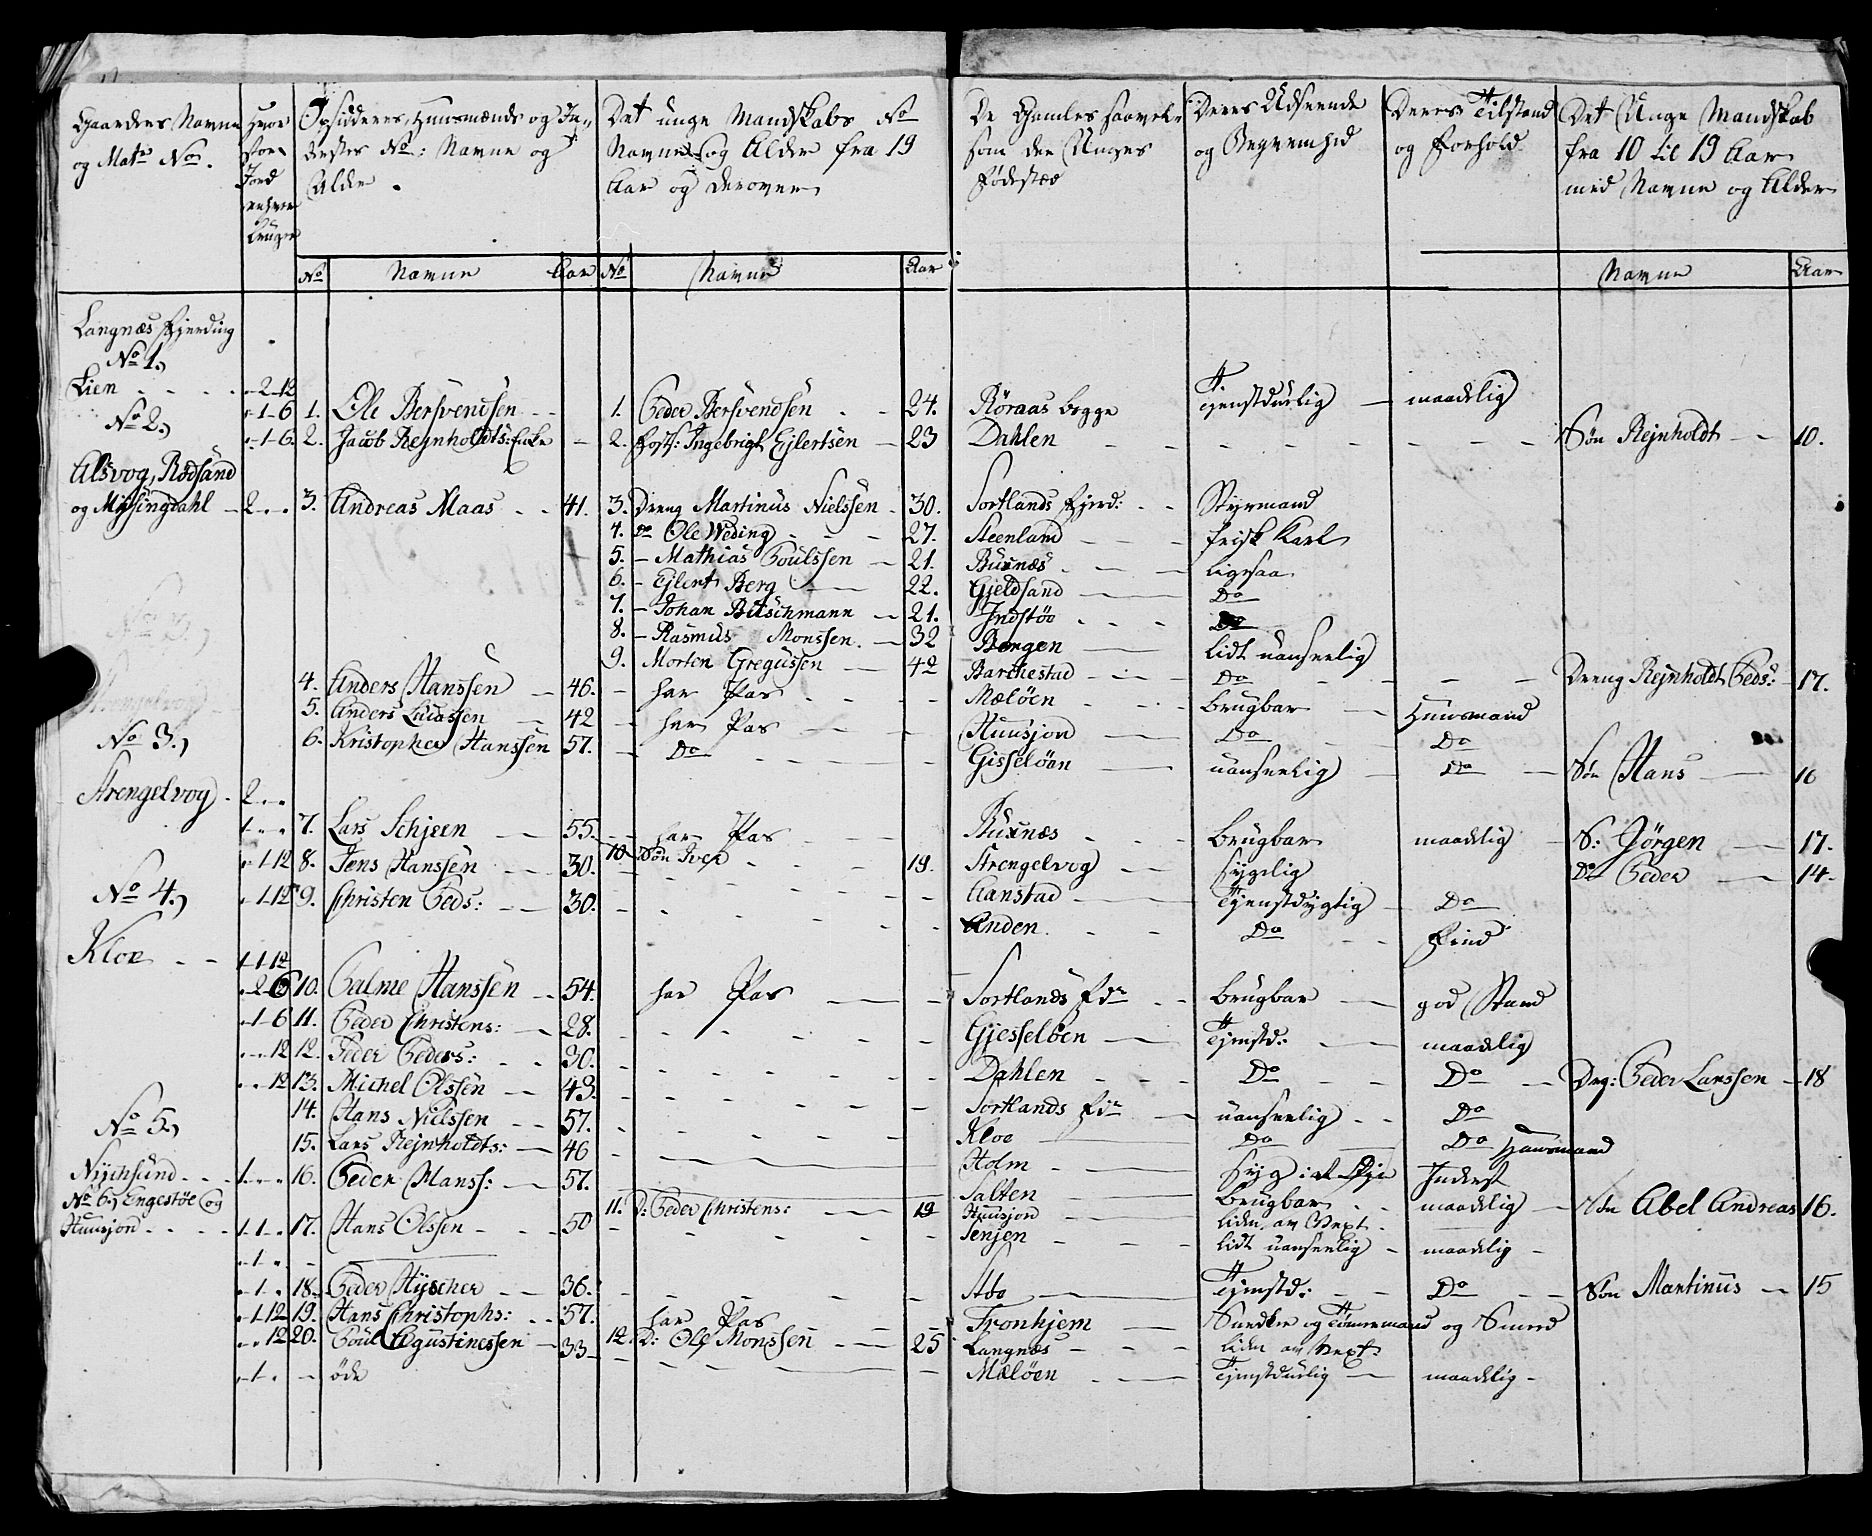 Gaardens Navne
og Mats No.
Hvor
stor
Jord
enhver
bruger
Opsidderes, Huusmænds og In-
dersters No: Navne og
Alder.
Det unge Mandskabs No
Navne og Alder fra 19
Aar og derover
De Gamles saavel
som den Unges
Fødested
Deres Udseende
og Beqvemhed
Deres Tilstand
og Forhold
Det Unge Mandskab
fra 10 til 19 Aar
med Navne og Alder
No Navne Aar No Navne Aar Navne Aar
Langnæs Fjerding
No 1.
Lien - 2-12
- 1-6 1. Ole Bersvendsen 1. Peder Bersvendsen 24. Röraas begge Tjenstdurlig maadelig
No 2.
- 1-6. 2. Jacob Rejnholdts: Enke - 2. Forst: Ingebrigt Ejlertsen 23 Dahlen Søn Rejnholdt 10.
Alsvog, Rødsand
og Misingdahl - 2 3. Andreas Maas 41. 3. Dreng Martinus Nielssen 30. Sortlands Fjerd: Styrmand
4. do Ole Weding 27. Steenland frisk Karl
5. - Mathias Poulssen 21. Buxnæs ligesaa
6. - Ejlert Berg 22. Gjeldsand Do
7. - Johan Butschmann 21. Indstöe Do
8. - Rasmus Monssen. 32 Bergen lidt uanseelig
9. Morten Gregussen 42 Barkestad Do Dreng Rejnholdt Peds: 17.
4. Anders Hanssen 46. har Pas Mæløen brugbar Huusmand
5. Anders Lucassen 42 har Pas Huusjord Do Do
No 3.
6. Kristopher Hanssen 57. Do Gisseløen uanseelig Do Søn Hans 16
Strengelvog 2
1 7. Lars Schjeen 55. har Pas Buxnæs brugbar maadelig S: Jörgen 17.
- 1-12 8. Jens Hanssen 30. 10 Søn Iver 19. Strengelvog sygelig Do Peder 14.
No 4.
- 1-12 9. Christen Peds: 30. Aanstad Tjenstdygtig Do
Anden Do
Kloe 1-1-12
- 2-6 10. Palme Hanssen 54. har Pas Sortlands Fdn brugbar god Stand
- 1-6 11. Peder Christens: 28. Gjesselöen Tjenstd: maadelig
- 12 12. Peder Peders: 30. Dahlen Do Do Drg: Peder Larssen 18
- 12 13. Michel Olssen 43. Sortlands Fdn uanseelig Do
No 5.
14. Hans Nielssen 57. Kloe Do Do Huusmand
15. Lars Rejnholdts: 46 Holm Inderst
Nychsund 1 16. Peder Hanss: 57. Salten brugbar maadelig Søn Abel Andreas 16.
No 6. Engestöe og
11. D: Peder Christens: 19 Huusjord liden av Vext
Huusjord 1-1 17. Hans Olssen 50 Senjen lidt uanseelig maadelig
- 1
- 1 18. Peder Hyscher 36. Aboe Tjenstd: Do Søn Martinus 15
- 1-12 19. Hans Christophs: 57. har Pas Tronhjem Snedker og Tömmermand og Smed
- 12 20. Poul Agustinessen 33 12. D: Ole Monssen 25 Langnæs liden av Vext:
- 1 öde Mæløen Tjenstdurlig maadelig